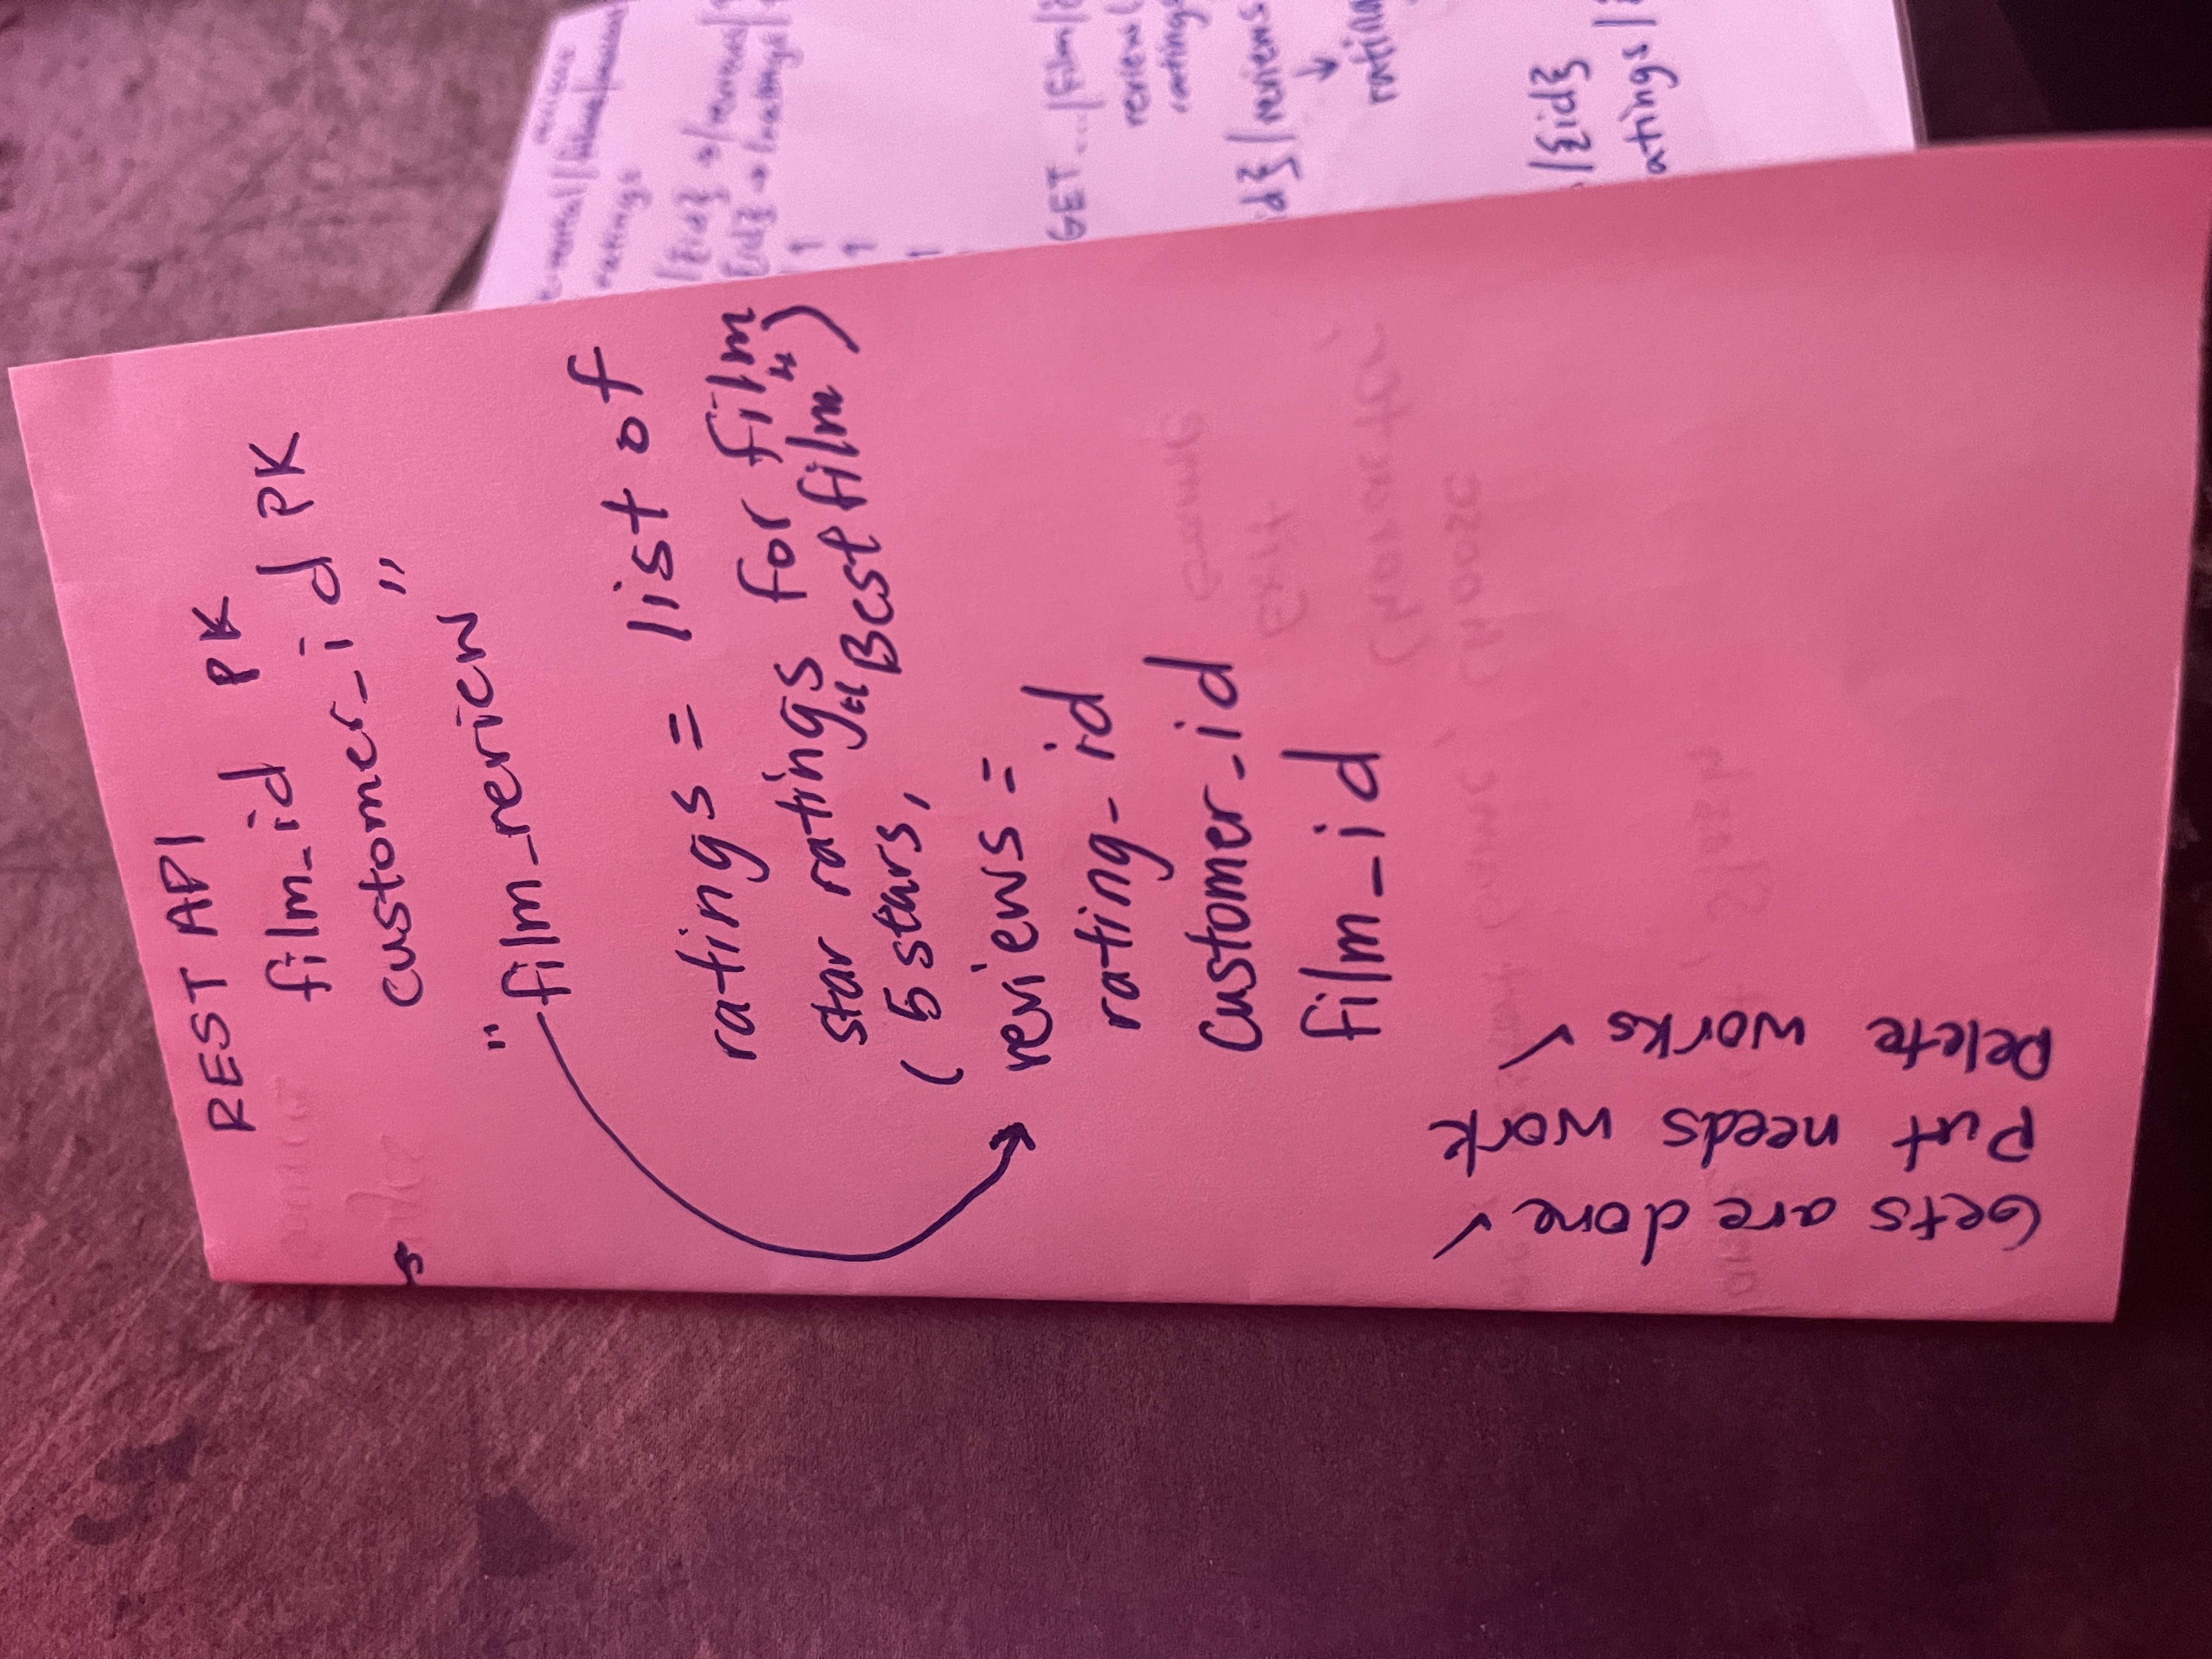 REST API
film_id PK
customer_id PK
"film_review"
ratings = list of
star ratings for film
(5 stars, "Best film")
reviews =
rating_id
customer_id
film_id
Gets are done ✓
Put needs work
Delete works ✓
ratings
/{id} → /reviews/
{id} → /ratings/
1
1
1
GET .../film/
review
ratings
id}/reviews
↓
rating
/{id}
atings/